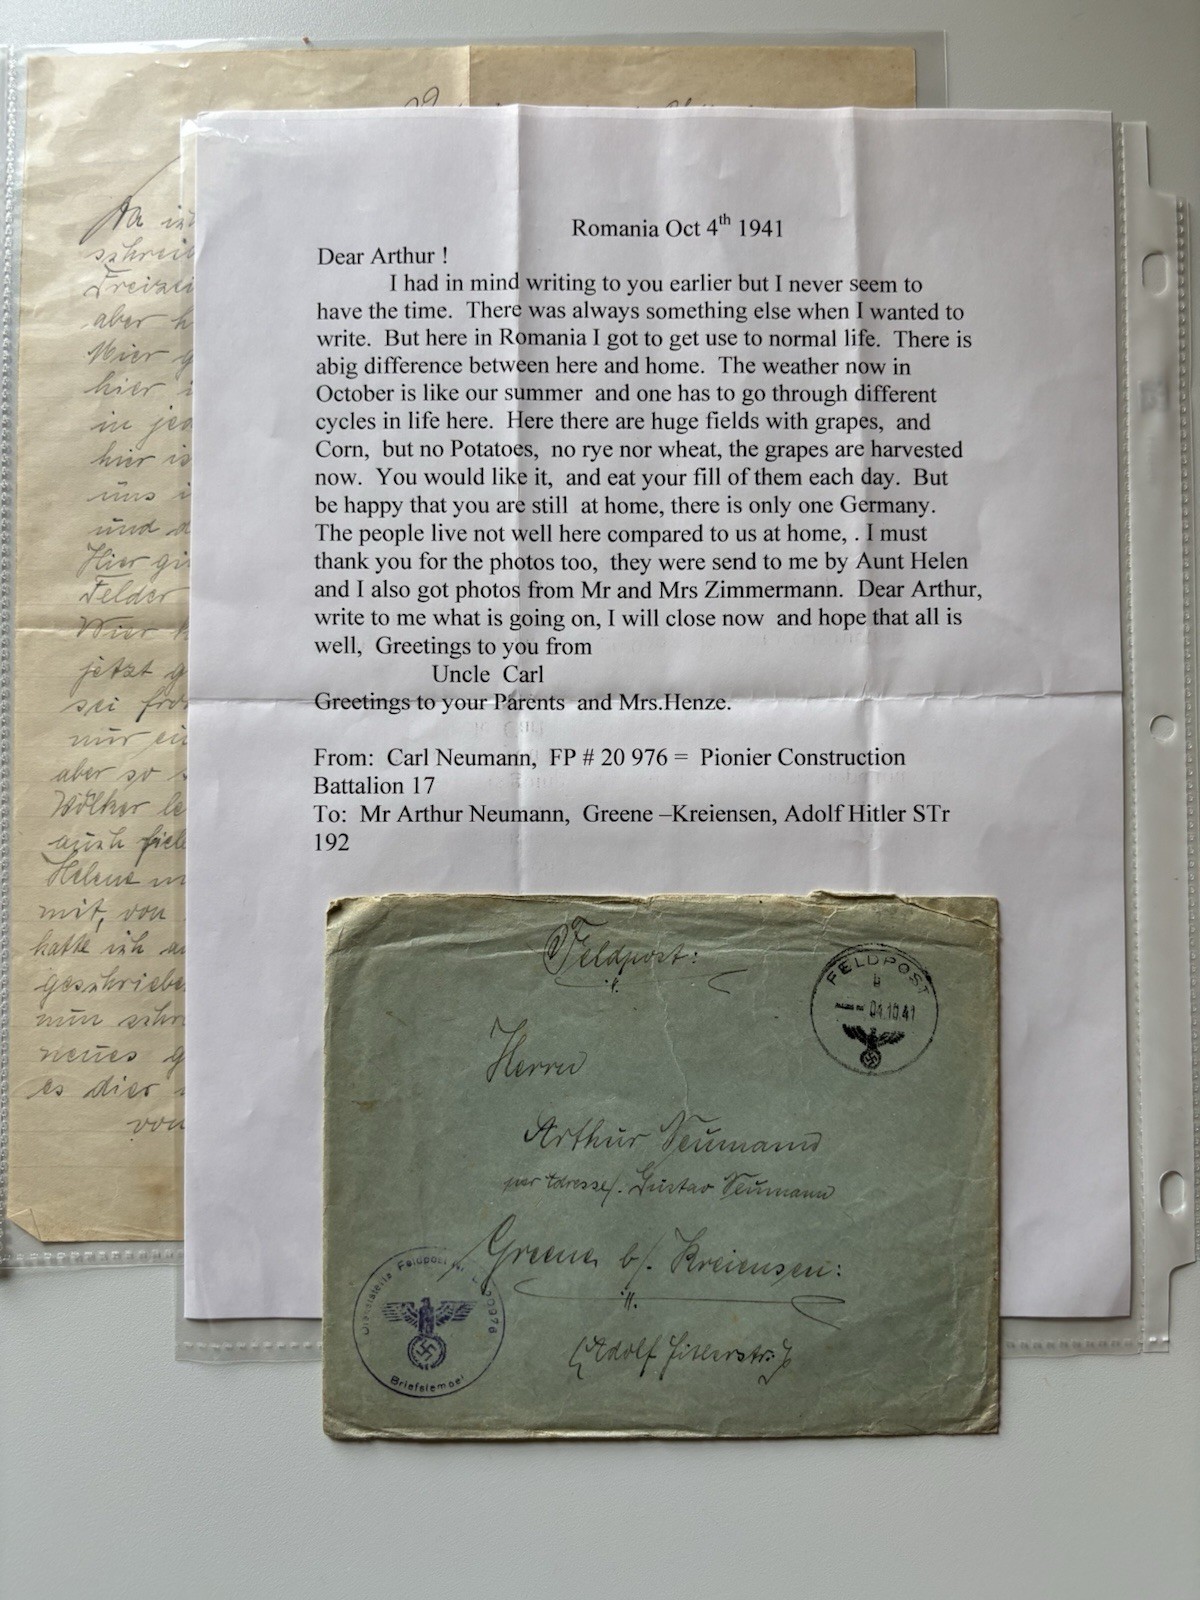 Da
schrei
Freizei
aber h
Wier g
hier i
in jed
hier is
uns i
und d
Hier gi
Felder
Wier h
jetzt g
sei fro
nur ein
aber so s
Völker le
auch fiele
Helene m
mit, von
hatte ich a
geschriebe
nun schre
neues g
es dier s
von
Romania Oct 4th 1941
Dear Arthur !
I had in mind writing to you earlier but I never seem to
have the time. There was always something else when I wanted to
write. But here in Romania I got to get use to normal life. There is
abig difference between here and home. The weather now in
October is like our summer and one has to go through different
cycles in life here. Here there are huge fields with grapes, and
Corn, but no Potatoes, no rye nor wheat, the grapes are harvested
now. You would like it, and eat your fill of them each day. But
be happy that you are still at home, there is only one Germany.
The people live not well here compared to us at home, . I must
thank you for the photos too, they were send to me by Aunt Helen
and I also got photos from Mr and Mrs Zimmermann. Dear Arthur,
write to me what is going on, I will close now and hope that all is
well, Greetings to you from
Uncle Carl
Greetings to your Parents and Mrs.Henze.
From: Carl Neumann, FP # 20 976 = Pionier Construction
Battalion 17
To: Mr Arthur Neumann, Greene –Kreiensen, Adolf Hitler STr
192
Feldpost:
FELDPOST
b
04.10.41
Herrn
Arthur Neumann
per Adresse/. Gustav Neumann
Greene b/. Kreiensen:
(Adolf Hitlerstr.)
Dienststelle Feldpost Nr. 20976
Briefstempel